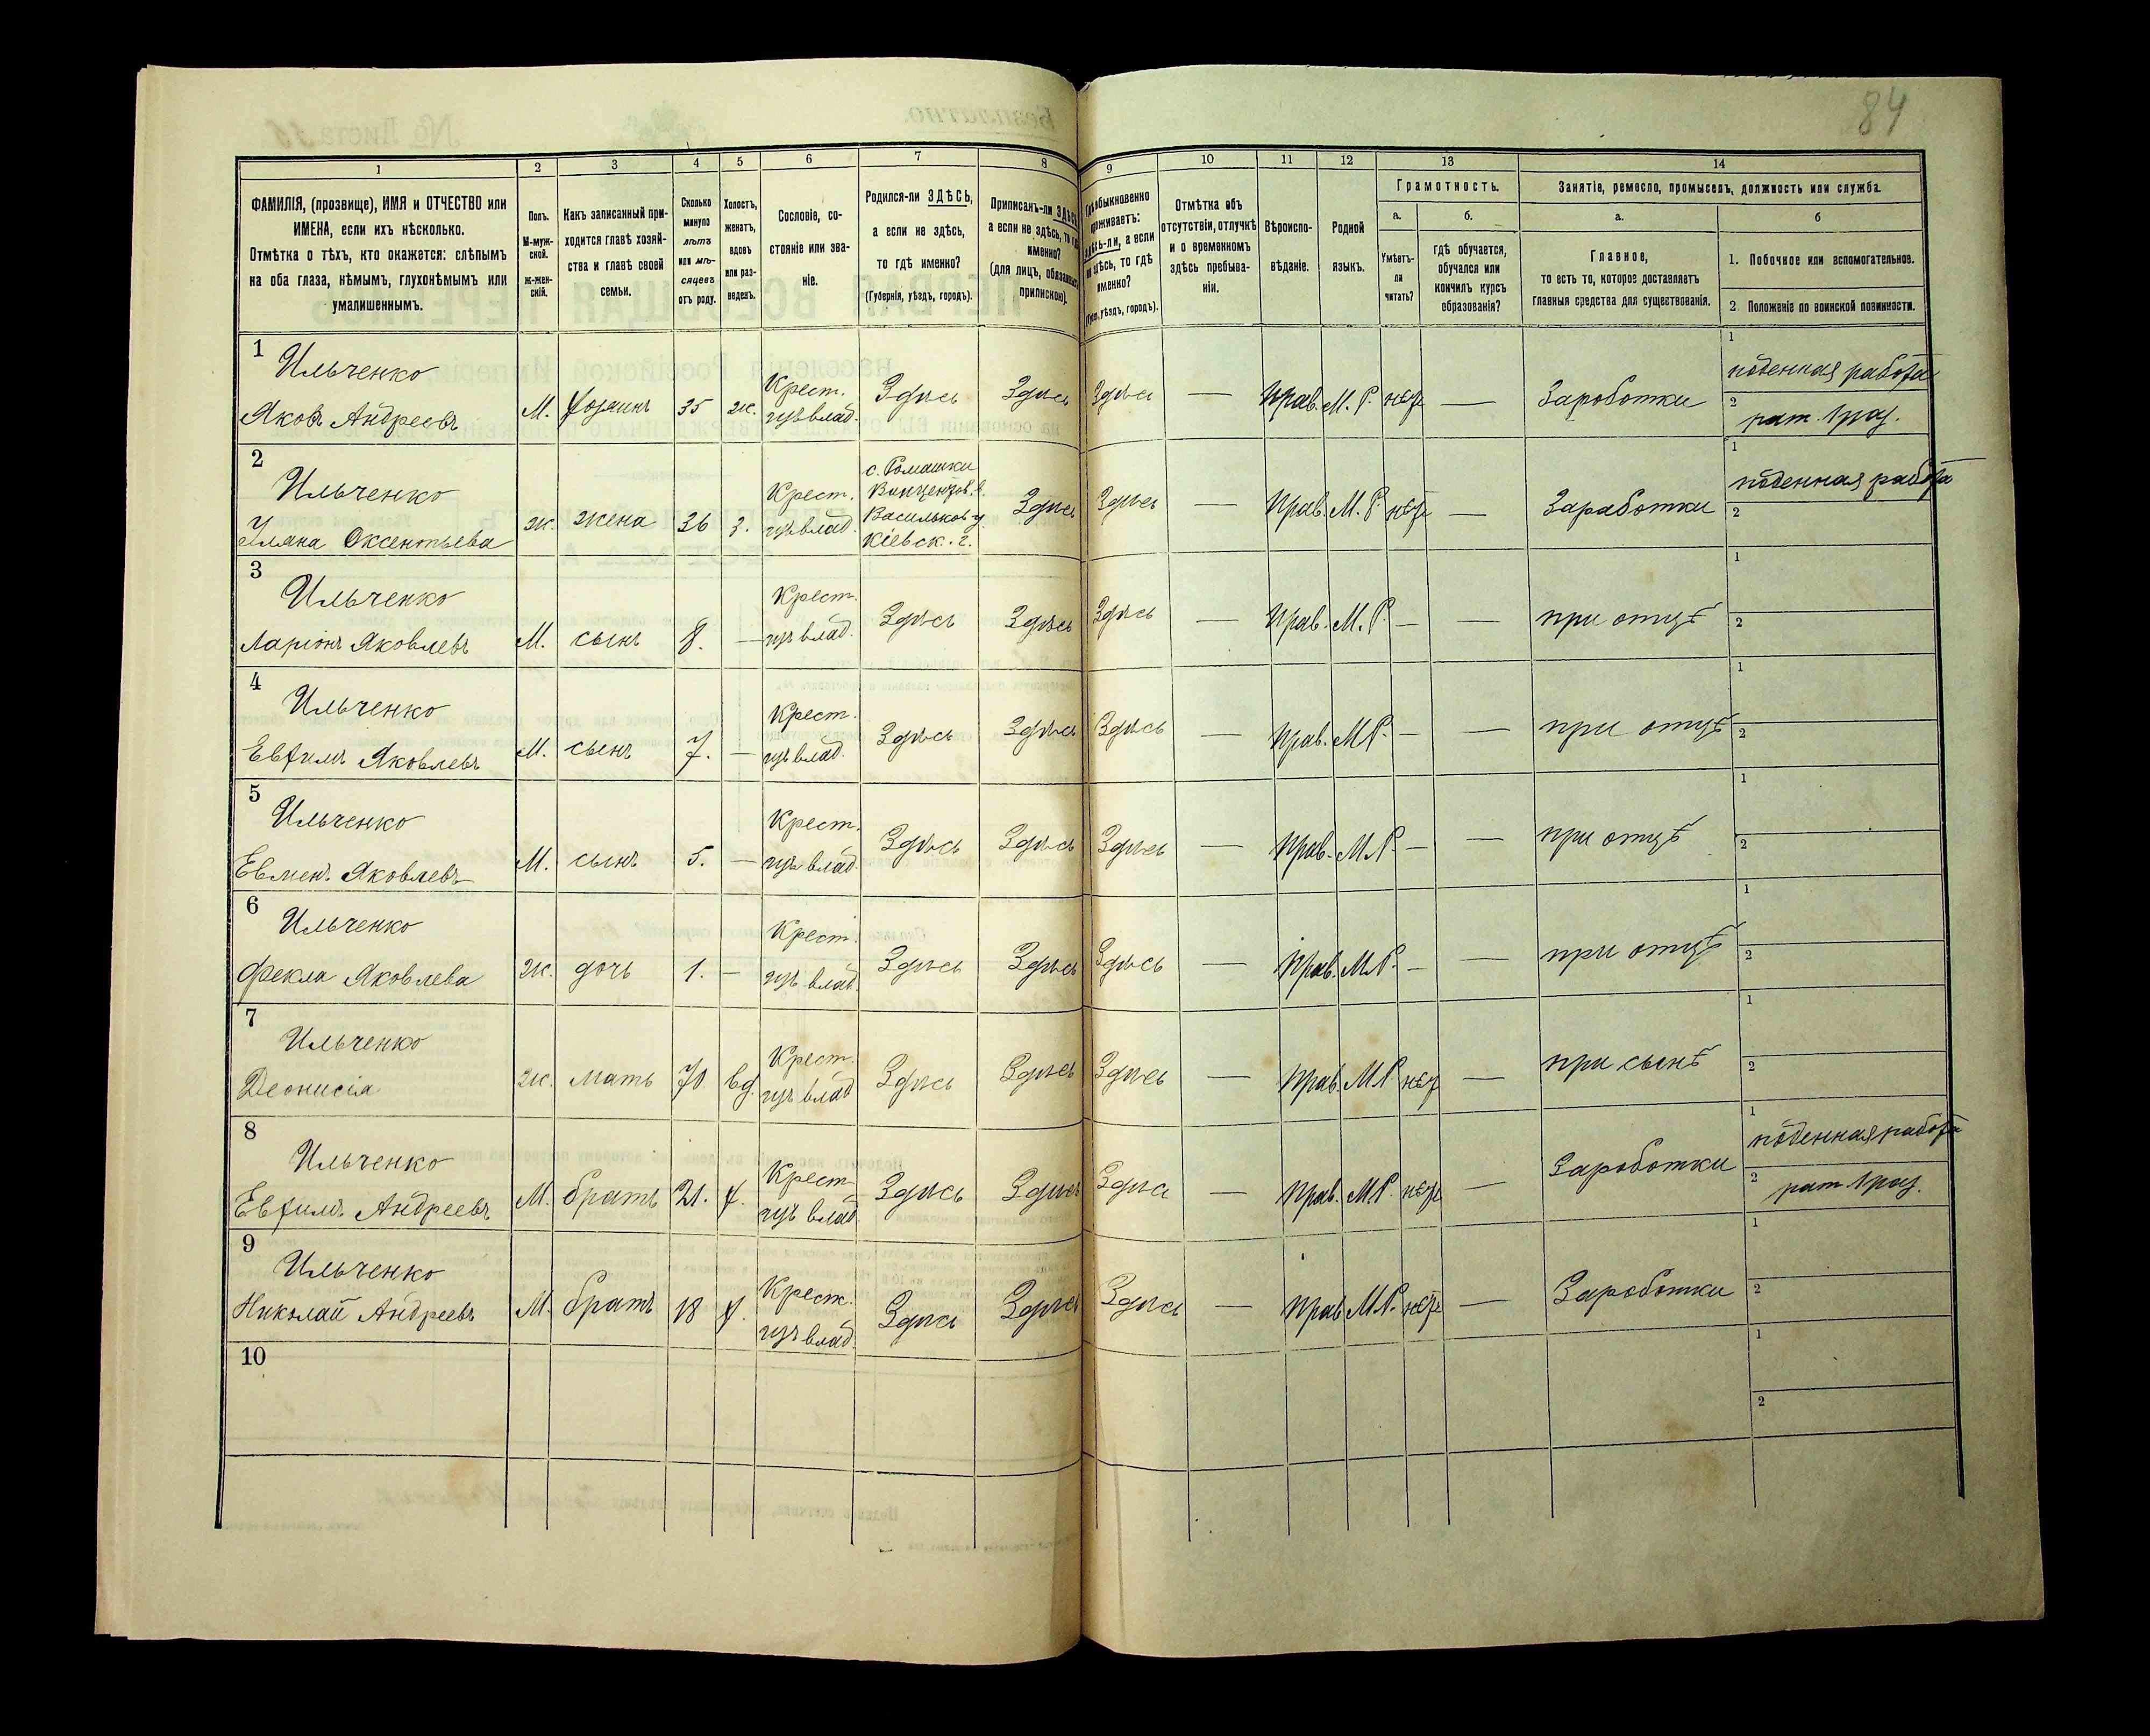 84
1 2 3 4 5 6 7 8 9 10 11 12 13 14
ФАМИЛІЯ, (прозвище), ИМЯ и ОТЧЕСТВО или
ИМЕНА, если ихъ нѣсколько.
Отмѣтка о тѣхъ, кто окажется: слѣпымъ
на оба глаза, нѣмымъ, глухонѣмымъ или
умалишеннымъ.
Полъ.
М-муж-
ской.
Ж-жен-
скій.
Какъ записанный при-
ходится главѣ хозяй-
ства и главѣ своей
семьи.
Сколько
минуло
лѣтъ
или мѣ-
сяцевъ
отъ роду.
Холостъ,
женатъ,
вдовъ
или раз-
веденъ.
Сословіе, со-
стояніе или зва-
ніе.
Родился-ли ЗДѢСЬ,
а если не здѣсь,
то гдѣ именно?
(Губернія, уѣздъ, городъ).
Приписанъ-ли ЗДѢСЬ,
а если не здѣсь, то гдѣ
именно?
(для лицъ, обязанныхъ
припискою).
Гдѣ обыкновенно
проживаетъ:
здѣсь-ли, а если
не здѣсь, то гдѣ
именно?
(Губ., уѣздъ, городъ).
Отмѣтка объ
отсутствіи, отлучкѣ
и о временномъ
здѣсь пребыва-
ніи.
Вѣроиспо-
вѣданіе.
Родной
языкъ.
Грамотность.
а.
Умѣетъ-
ли
читать?
б.
гдѣ обучается,
обучался или
кончилъ курсъ
образованія?
Занятіе, ремесло, промыселъ, должность или служба.
а.
Главное,
то есть то, которое доставляетъ
главныя средства для существованія.
б
1. Побочное или вспомогательное.
2. Положеніе по воинской повинности.
1 Ильченко
Яковъ Андреевъ М. хозяинъ 35 ж. Крест. изъ влад. Здѣсь Здѣсь Здѣсь — Прав. М. Р. нѣтъ — Заработки
1 поденная работа
2 рат. 1 раз.
2 Ильченко
Уляна Оксентьева ж. жена 36 з. Крест. изъ влад.
с. Ромашки
Васильков. у.
Кіевск. г.
Здѣсь Здѣсь — Прав. М. Р. нѣтъ — Заработки
1 поденная работа
2
3 Ильченко
Ларіонъ Яковлевъ М. сынъ 8. — Крест. изъ влад. Здѣсь Здѣсь Здѣсь — Прав. М. Р. — — при отцѣ
1
2
4 Ильченко
Евфимъ Яковлевъ М. сынъ 7. — Крест. изъ влад. Здѣсь Здѣсь Здѣсь — Прав. М Р. — — при отцѣ
1
2
5 Ильченко
Евмен. Яковлевъ М. сынъ 5. — Крест. изъ влад. Здѣсь Здѣсь Здѣсь — Прав. М.Р. — — при отцѣ
1
2
6 Ильченко
Фекла Яковлева ж. дочь 1. — Крест. изъ влад. Здѣсь Здѣсь Здѣсь — Прав. М.Р. — — при отцѣ
1
2
7 Ильченко
Деонисія ж. мать 70 вд. Крест. изъ влад Здѣсь Здѣсь Здѣсь — Прав. М Р нѣтъ — при сынѣ
1
2
8 Ильченко
Евфимъ Андреевъ М. братъ 21. х. Крест. изъ влад. Здѣсь Здѣсь Здѣсь — Прав. М.Р. нѣтъ — Заработки
1 поденная работа
2 рат. 1 раз.
9 Ильченко
Николай Андреевъ М. братъ 18 х. Крест. изъ влад. Здѣсь Здѣсь Здѣсь — Прав М.Р. нѣтъ — Заработки
1
2
10
1
2